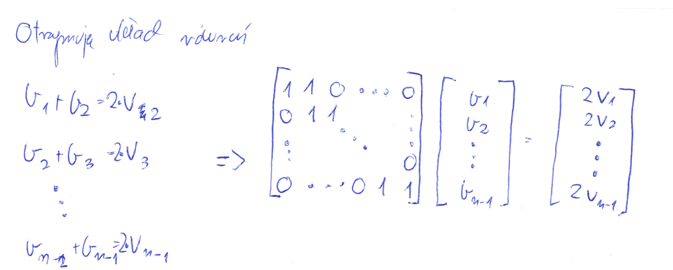 Otrzymuję układ równań
σ₁ + σ₂ = 2·V₂
σ₂ + σ₃ = 2·V₃
⋮
σₙ₋₂ + σₙ₋₁ = 2·Vₙ₋₁
=>
[1 1 0 ... 0
0 1 1 ⋱ ⋮
⋮ ⋱ 0
0 ... 0 1 1]
[σ₁
σ₂
⋮
σₙ₋₁]
=
[2V₁
2V₂
⋮
2Vₙ₋₁]